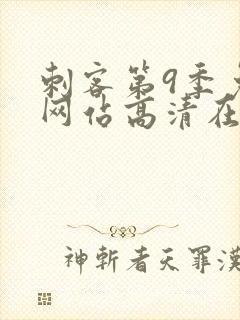 刺客第9季
网佔高清在
神斬者天罪漢